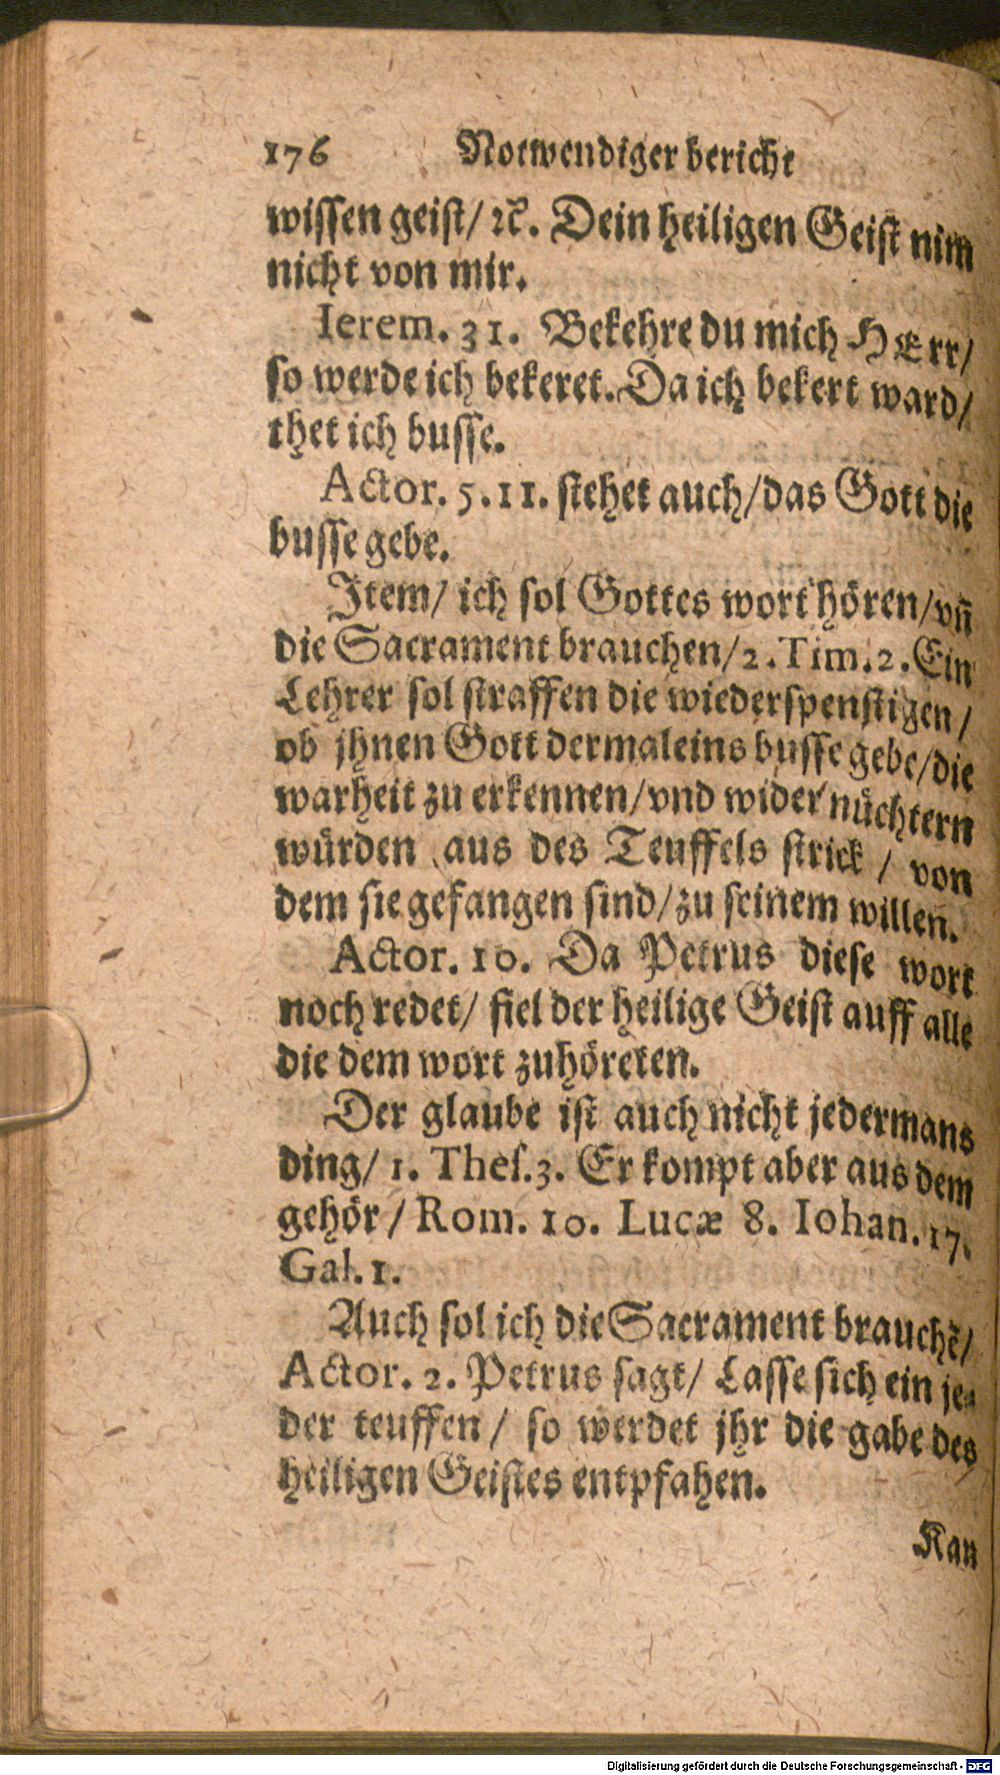 176 Notwendiger bericht
wissen geist/ ꝛc̃. Dein heiligen Geist nim
nicht von mir.
Ierem. 31. Bekehre du mich HErr/
so werde ich bekeret. Da ich bekert ward/
thet ich busse.
Actor. 5. 11. stehet auch/ das Gott die
busse gebe.
Item/ ich sol Gottes wort hören/ vñ
die Sacrament brauchen/ 2. Tim. 2. Ein
Lehrer sol straffen die wiederspenstigen/
ob jhnen Gott dermaleins busse gebe/ die
warheit zu erkennen/ vnd wider nüchtern
würden aus des Teuffels strick/ von
dem sie gefangen sind/ zu seinem willen.
Actor. 10. Da Petrus diese wort
noch redet/ fiel der heilige Geist auff alle
die dem wort zuhöreten.
Der glaube ist auch nicht jedermans
ding/ 1. Thes. 3. Er kompt aber aus dem
gehör/ Rom. 10. Lucæ 8. Iohan. 17.
Gal. 1.
Auch sol ich die Sacrament brauchẽ/
Actor. 2. Petrus sagt/ Lasse sich ein je-
der teuffen/ so werdet jhr die gabe des
heiligen Geistes entpfahen.
Kan
Digitalisierung gefördert durch die Deutsche Forschungsgemeinschaft - DFG